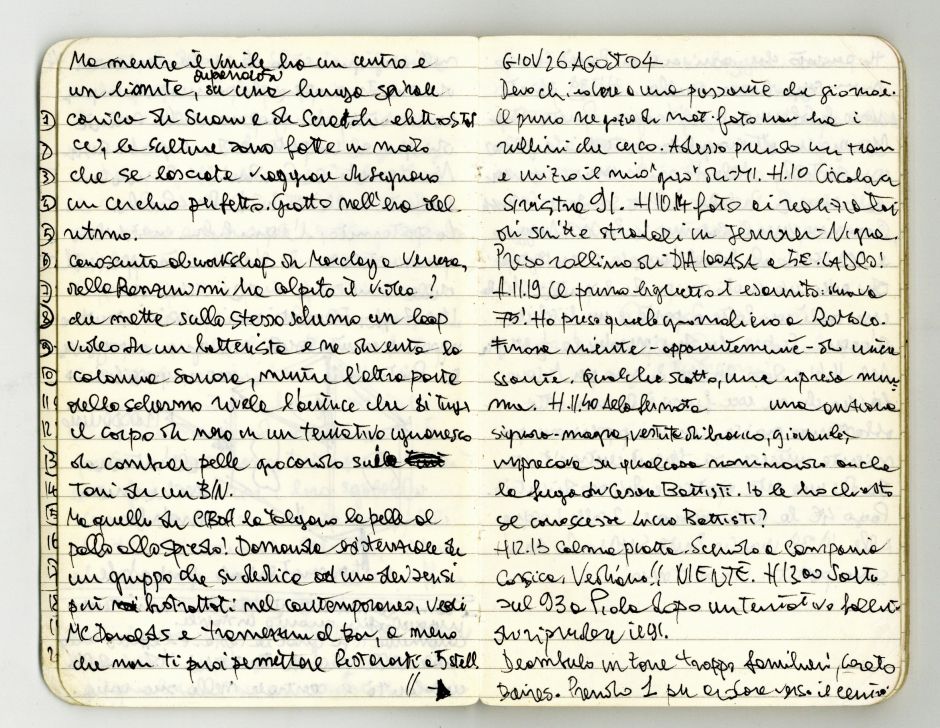 Ma mentre il vinile ha un centro e
un limite, su una lunga spirale
carica di suono e di scratch elettrosta
ci, le sculture sono fatte in modo
che se lasciate viaggiare disegnano
un cerchio perfetto. Giotto nell'era del
ritmo.
conosciuta al workshop di Marclay a Venezia,
della mi ha colpito il video?
che mette sullo stesso schermo un loop
video di un batterista e ne diventa la
colonna sonora, mentre l'altra parte
dello schermo rivela l'artista che si tinge
il corpo di nero in un tentativo
di cambiar pelle giocando sui
Toni di un B/N.
Ma quelli di la tolgono la pelle al
pollo allo spiedo! Domanda di
un gruppo che si dedica ad uno dei sensi
più bistrattati nel contemporaneo, vedi
McDonalds e tramezzini al bar, a meno
che non ti puoi permettere 5 stell
// →
GIOV 26 AGOST 04
Devo chiedere a una passante che giorno è.
Il primo negozio di mat. foto non ha i
rullini che cerco. Adesso prendo un tram
e inizio il mio "giro" di MI. H.10 Circolare
Sinistra 91. H10.14 foto ai realizzatori
di scritte stradali in Jenner-
Preso rullino di DIA 100 ASA a 5€. LADRO!
H.11.19 Il primo biglietto è esaurito: durava
75'! Ho preso quello giornaliero a ROMOLO.
Finora niente - apparentemente - di inte
ssante. Qualche scatto, una ripresa
ma. H.11.40 alla fermata una anziana
signora magra, vestita di bianco, giovanile,
impreca su qualcosa nominando anche
la fuga di Cesare Battisti. Io le ho chiesto
se conoscesse Lucio Battisti?
H12.13 Calma piatta. Scendo a Campania
Corsica. Vediamo!! NIENTE. H1300 Salto
sul 93 a Piola dopo un tentativo fallito
di riprendere il 91.
Deambulo in zone troppo familiari, Loreto
Baires. Prendo 1 per andare verso il centro